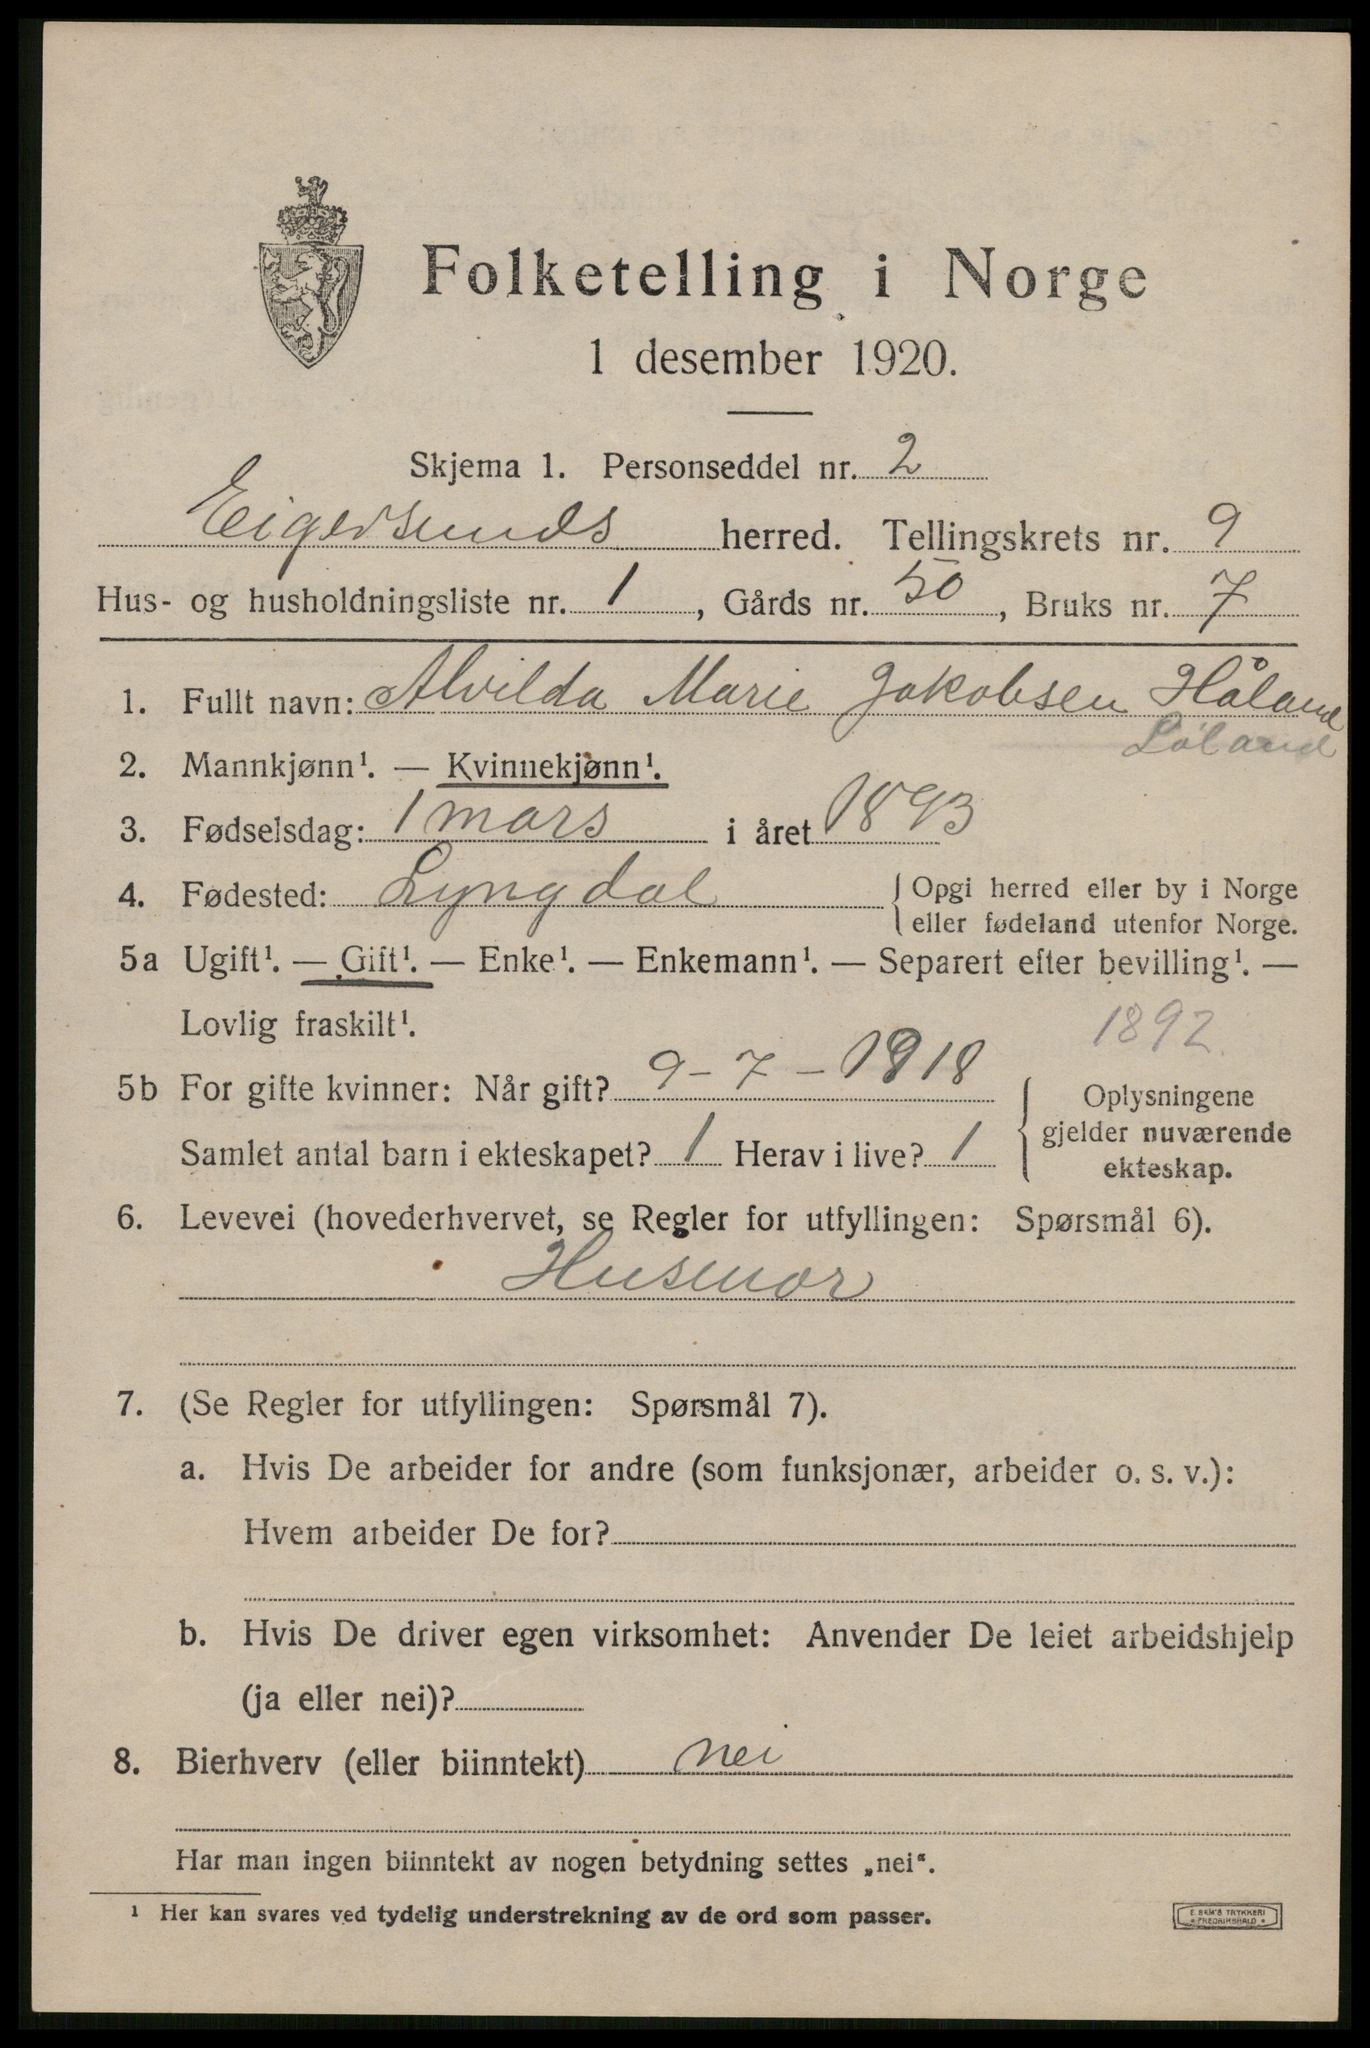 Folketelling i Norge
1 desember 1920.
Skjema 1. Personseddel nr. 2
Eigersunds herred. Tellingskrets nr. 9
Hus- og husholdningsliste nr. 1, Gårds nr. 50, Bruks nr. 7
1. Fullt navn: Alvilda Marie Jakobsen Håland
Løland
2. Mannkjønn¹. — Kvinnekjønn¹.
3. Fødselsdag: 1 mars i året 1893
4. Fødested: Lyngdal { Opgi herred eller by i Norge
eller fødeland utenfor Norge.
5a Ugift¹. — Gift¹. — Enke¹. — Enkemann¹. — Separert efter bevilling¹. —
Lovlig fraskilt¹. 1892
5b For gifte kvinner: Når gift? 9-7-1918 { Oplysningene
gjelder nuværende
Samlet antal barn i ekteskapet? 1 Herav i live? 1
ekteskap.
6. Levevei (hovederhvervet, se Regler for utfyllingen: Spørsmål 6).
Husmor
7. (Se Regler for utfyllingen: Spørsmål 7).
a. Hvis De arbeider for andre (som funksjonær, arbeider o. s. v.):
Hvem arbeider De for?
b. Hvis De driver egen virksomhet: Anvender De leiet arbeidshjelp
(ja eller nei)?
8. Bierhverv (eller biinntekt) nei
Har man ingen biinntekt av nogen betydning settes „nei“.
¹ Her kan svares ved tydelig understrekning av de ord som passer.
E. SEM'S TRYKKERI
FREDRIKSHALD